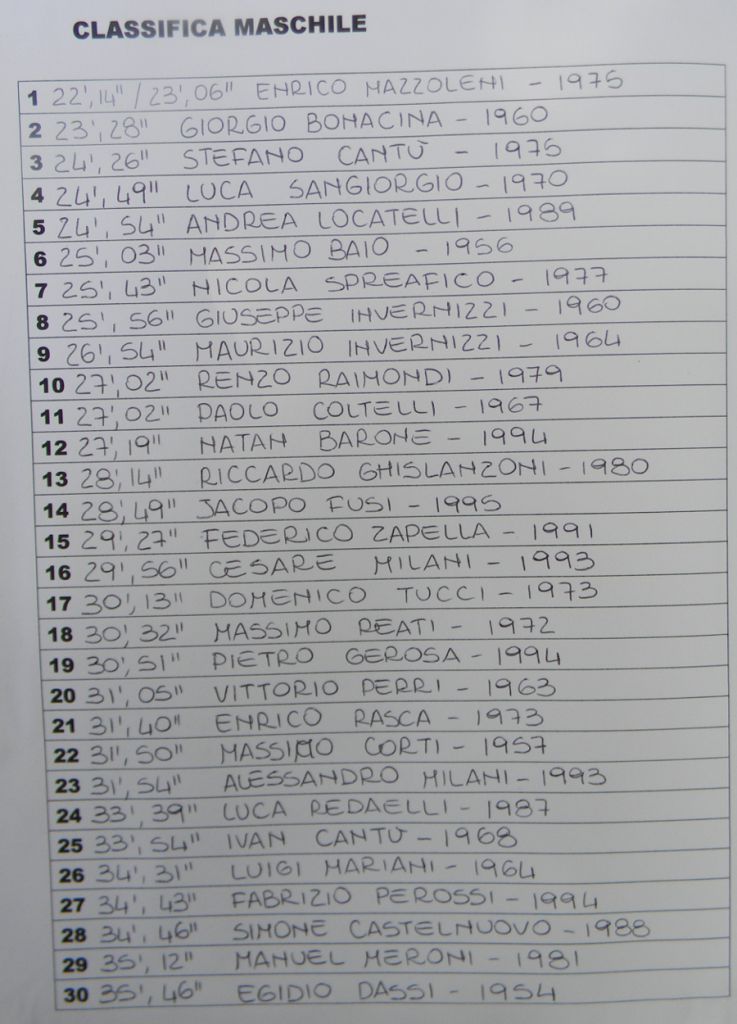 CLASSIFICA MASCHILE
1 22',14" / 23',06" ENRICO MAZZOLENI - 1975
2 23',28" GIORGIO BONACINA - 1960
3 24',26" STEFANO CANTÙ - 1975
4 24',49" LUCA SANGIORGIO - 1970
5 24',54" ANDREA LOCATELLI - 1989
6 25',03" MASSIMO BAIO - 1956
7 25',43" NICOLA SPREAFICO - 1977
8 25',56" GIUSEPPE INVERNIZZI - 1960
9 26',54" MAURIZIO INVERNIZZI - 1964
10 27',02" RENZO RAIMONDI - 1979
11 27',02" PAOLO COLTELLI - 1967
12 27',19" NATAN BARONE - 1994
13 28',14" RICCARDO GHISLANZONI - 1980
14 28',49" JACOPO FUSI - 1995
15 29',27" FEDERICO ZAPELLA - 1991
16 29',56" CESARE MILANI - 1993
17 30',13" DOMENICO TUCCI - 1973
18 30',32" MASSIMO REATI - 1972
19 30',51" PIETRO GEROSA - 1994
20 31',05" VITTORIO PERRI - 1963
21 31',40" ENRICO RASCA - 1973
22 31',50" MASSIMO CORTI - 1957
23 31',54" ALESSANDRO MILANI - 1993
24 33',39" LUCA REDAELLI - 1987
25 33',54" IVAN CANTÙ - 1968
26 34',31" LUIGI MARIANI - 1964
27 34',43" FABRIZIO PEROSSI - 1994
28 34',46" SIMONE CASTELNUOVO - 1988
29 35',12" MANUEL MERONI - 1981
30 35',46" EGIDIO DASSI - 1954